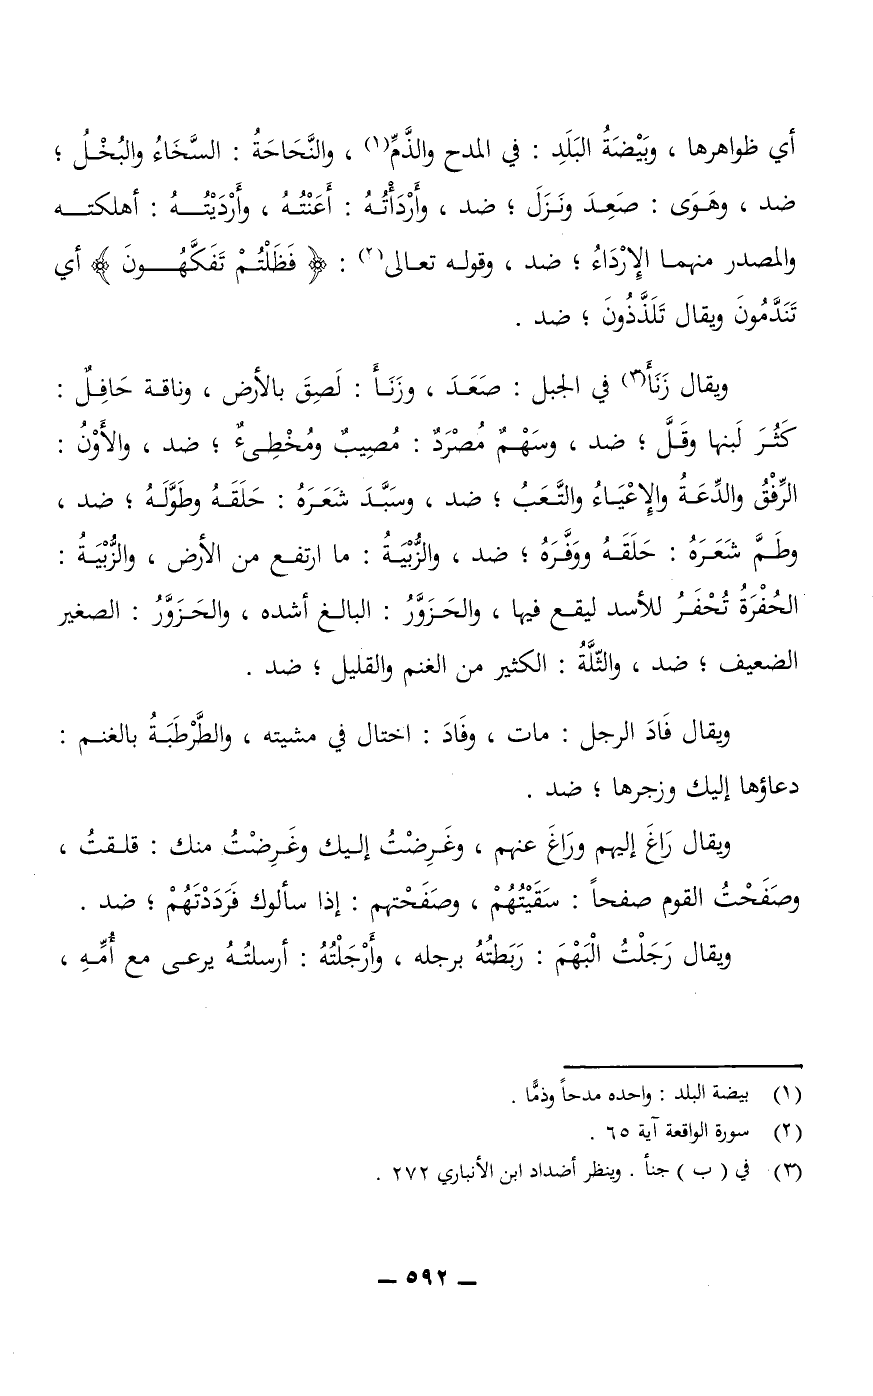 أي ظواهرها ، وبَيْضَةُ البَلَدِ : في المدح والذَّمِّ(١) ، والنَّحَاحَةُ : السَّخَاءُ والبُخْلُ ؛
ضد ، وهَوَى : صَعِدَ ونَزَلَ ؛ ضد ، وأَرْدَأْتُهُ : أَعَنْتُهُ ، وأَرْدَيْتُهُ : أهلكته
والمصدر منهما الإِرْدَاءُ ؛ ضد ، وقوله تعالى(٢) : ﴿ فَظَلْتُمْ تَفَكَّهُونَ ﴾ أي
تَنَدَّمُونَ ويقال تَلَذَّذُونَ ؛ ضد .
ويقال زَنَأَ(٣) في الجبل : صَعَدَ ، وزَنَأَ : لَصِقَ بالأرض ، وناقة حَافِلٌ :
كَثُرَ لَبنها وقَلَّ ؛ ضد ، وسَهْمٌ مُصْرَدٌ : مُصِيبٌ ومُخْطِىءٌ ؛ ضد ، والأَوْنُ :
الرِّفْقُ والدِّعَةُ والإِعْيَاءُ والتَّعَبُ ؛ ضد ، وسَبَّدَ شَعَرَهُ : حَلَقَهُ وطَوَّلَهُ ؛ ضد ،
وطَمَّ شَعَرَهُ : حَلَقَهُ ووَفَّرَهُ ؛ ضد ، والزُّبْيَةُ : ما ارتفع من الأرض ، والزُّبْيَةُ :
الحُفْرَةُ تُحْفَرُ للأسد ليقع فيها ، والحَزَوَّرُ : البالغ أشده ، والحَزَوَّرُ : الصغير
الضعيف ؛ ضد ، والثُّلَّةُ : الكثير من الغنم والقليل ؛ ضد .
ويقال فَادَ الرجل : مات ، وفَادَ : اختال في مشيته ، والطَّرْطَبَةُ بالغنم :
دعاؤها إليك وزجرها ؛ ضد .
ويقال رَاغَ إليهم ورَاغَ عنهم ، وغَرِضْتُ إليك وغَرِضْتُ منك : قلقتُ ،
وصَفَحْتُ القوم صفحاً : سَقَيْتُهُمْ ، وصَفَحْتهم : إذا سألوك فَرَدَدْتَهُمْ ؛ ضد .
ويقال رَجَلْتُ الْبَهْمَ : رَبَطتُهُ برجله ، وأَرْجَلْتُهُ : أرسلتُهُ يرعى مع أُمِّهِ ،
(١) بيضة البلد : واحده مدحاً وذمًّا .
(٢) سورة الواقعة آية ٦٥ .
(٣) في ( ب ) جنأ . وينظر أضداد ابن الأنباري ٢٧٢ .
— ٥٩٢ —